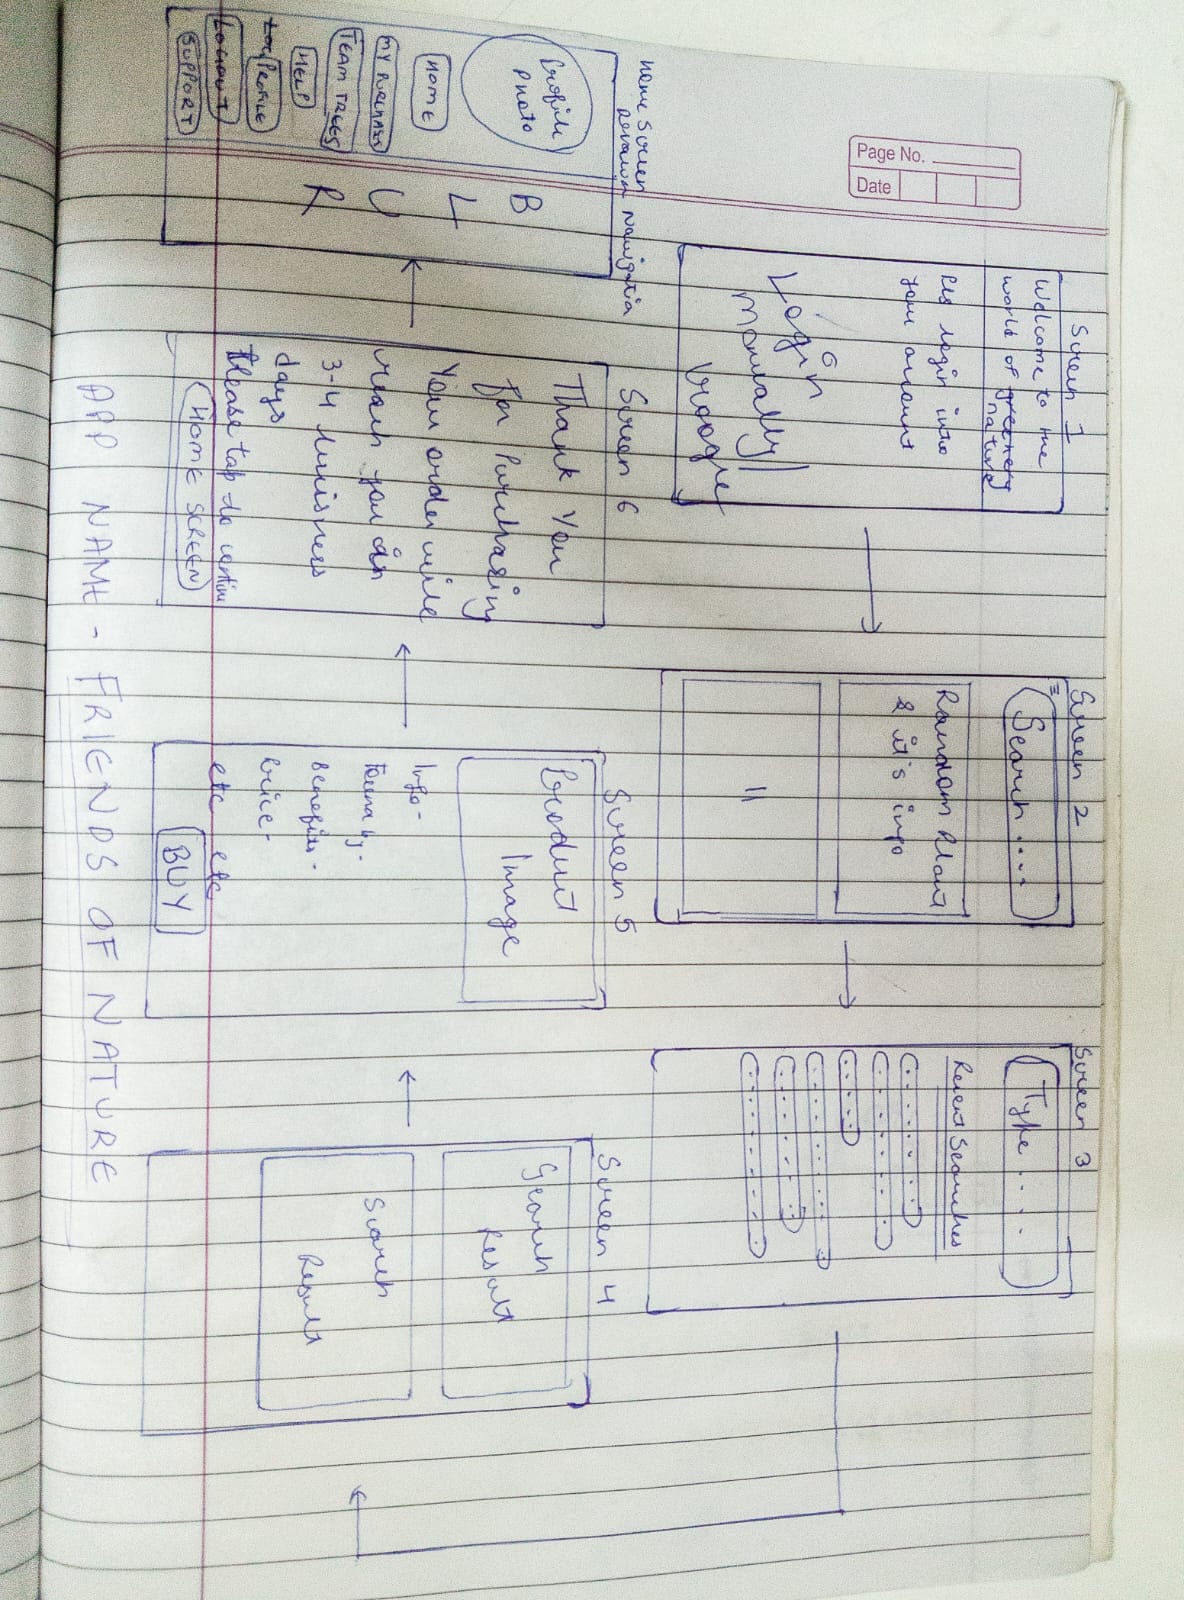 Page No.
Date
Screen 1
Welcome to the
world of greenery
nature
Pls login into
your account
Login
Manually
Google
Screen 2
Search....
Random Plant
& it's info
"
Screen 3
Type....
Recent Searches
Screen 4
Search
Result
Search
Result
Screen 5
Product
Image
Info-
Benefits-
Price-
etc etc
BUY
Screen 6
Thank You
For Purchasing
Your order will
reach you in
3-4 business
days
Please tap to
HOME SCREEN
Home Screen
Navigation
Profile
Photo
HOME
TEAM TREES
HELP
PROFILE
LOGOUT
SUPPORT
B
L
U
R
APP NAME - FRIENDS OF NATURE